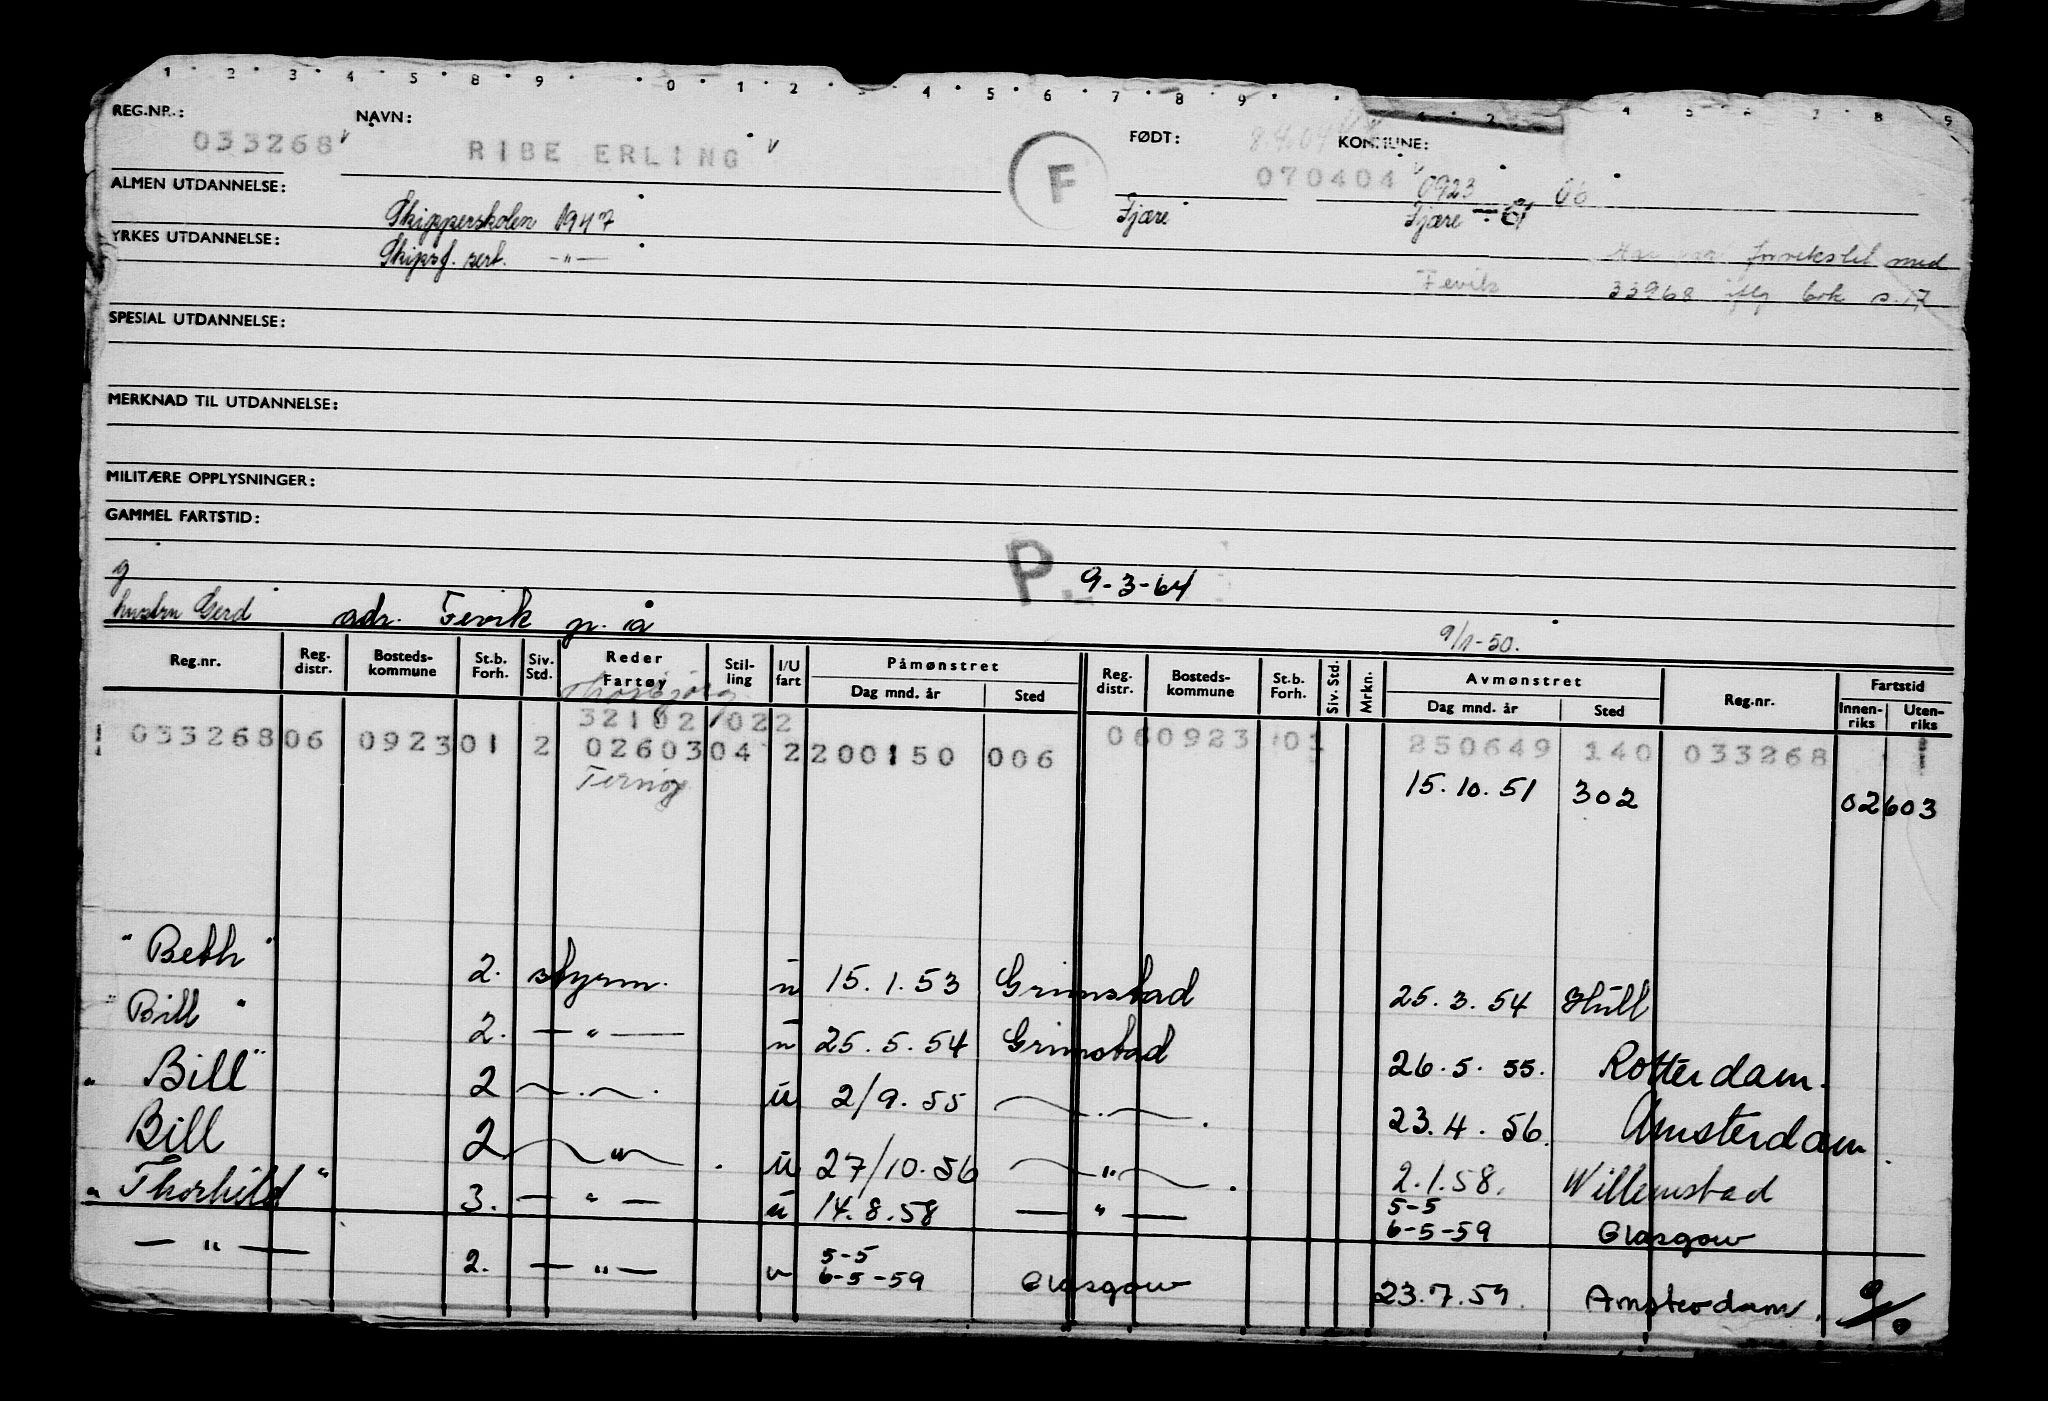 1 2 3 4 5 8 9 0 1 2 3 4 5 6 7 8 9 1 2 4 5 6 7 8 9
REG.NR.: NAVN: FØDT: 8.4.04 KOMMUNE:
033268 RIBE ERLING F 070404 0923 06
ALMEN UTDANNELSE: Skipperskolen 1947 Fjære Fjære
YRKES UTDANNELSE: Skipsf. sert. —"— forvekslet med
Fevik 33968 iflg bok s. 17
SPESIAL UTDANNELSE:
MERKNAD TIL UTDANNELSE:
MILITÆRE OPPLYSNINGER:
GAMMEL FARTSTID:
g P 9-3-64
hustru Gerd adr. Fevik p. å 9/1-50.
Reg.nr. Reg. distr. Bosteds-kommune St.b. Forh. Siv. Std. Reder Fartøy Stil-ling I/U fart Påmønstret Dag mnd. år Sted Reg. distr. Bosteds-kommune St.b. Forh. Siv. Std. Mrkn. Avmønstret Dag mnd. år Sted Reg.nr. Fartstid Innen-riks Uten-riks
Thorbjørg
32102 022
033268 06 0923 01 2 02603 04 2 200150 006 06 0923 01 250649 140 033268
Ternøy 15.10.51 302 02603
"Beth" 2. styrm. u 15.1.53 Grimstad 25.3.54 Hull
"Bill" 2. —"— u 25.5.54 Grimstad 26.5.55. Rotterdam.
"Bill" 2 —"— u 2/9.55 —"— 23.4.56. Amsterdam.
Bill 2 —"— u 27/10.56 —"— 2.1.58. Willemstad
"Thorhild" 3. —"— u 14.8.58 —"— 5-5 6-5-59 Glasgow
—"— 2. —"— u 5-5 6-5-59 Glasgow 23.7.59. Amsterdam.